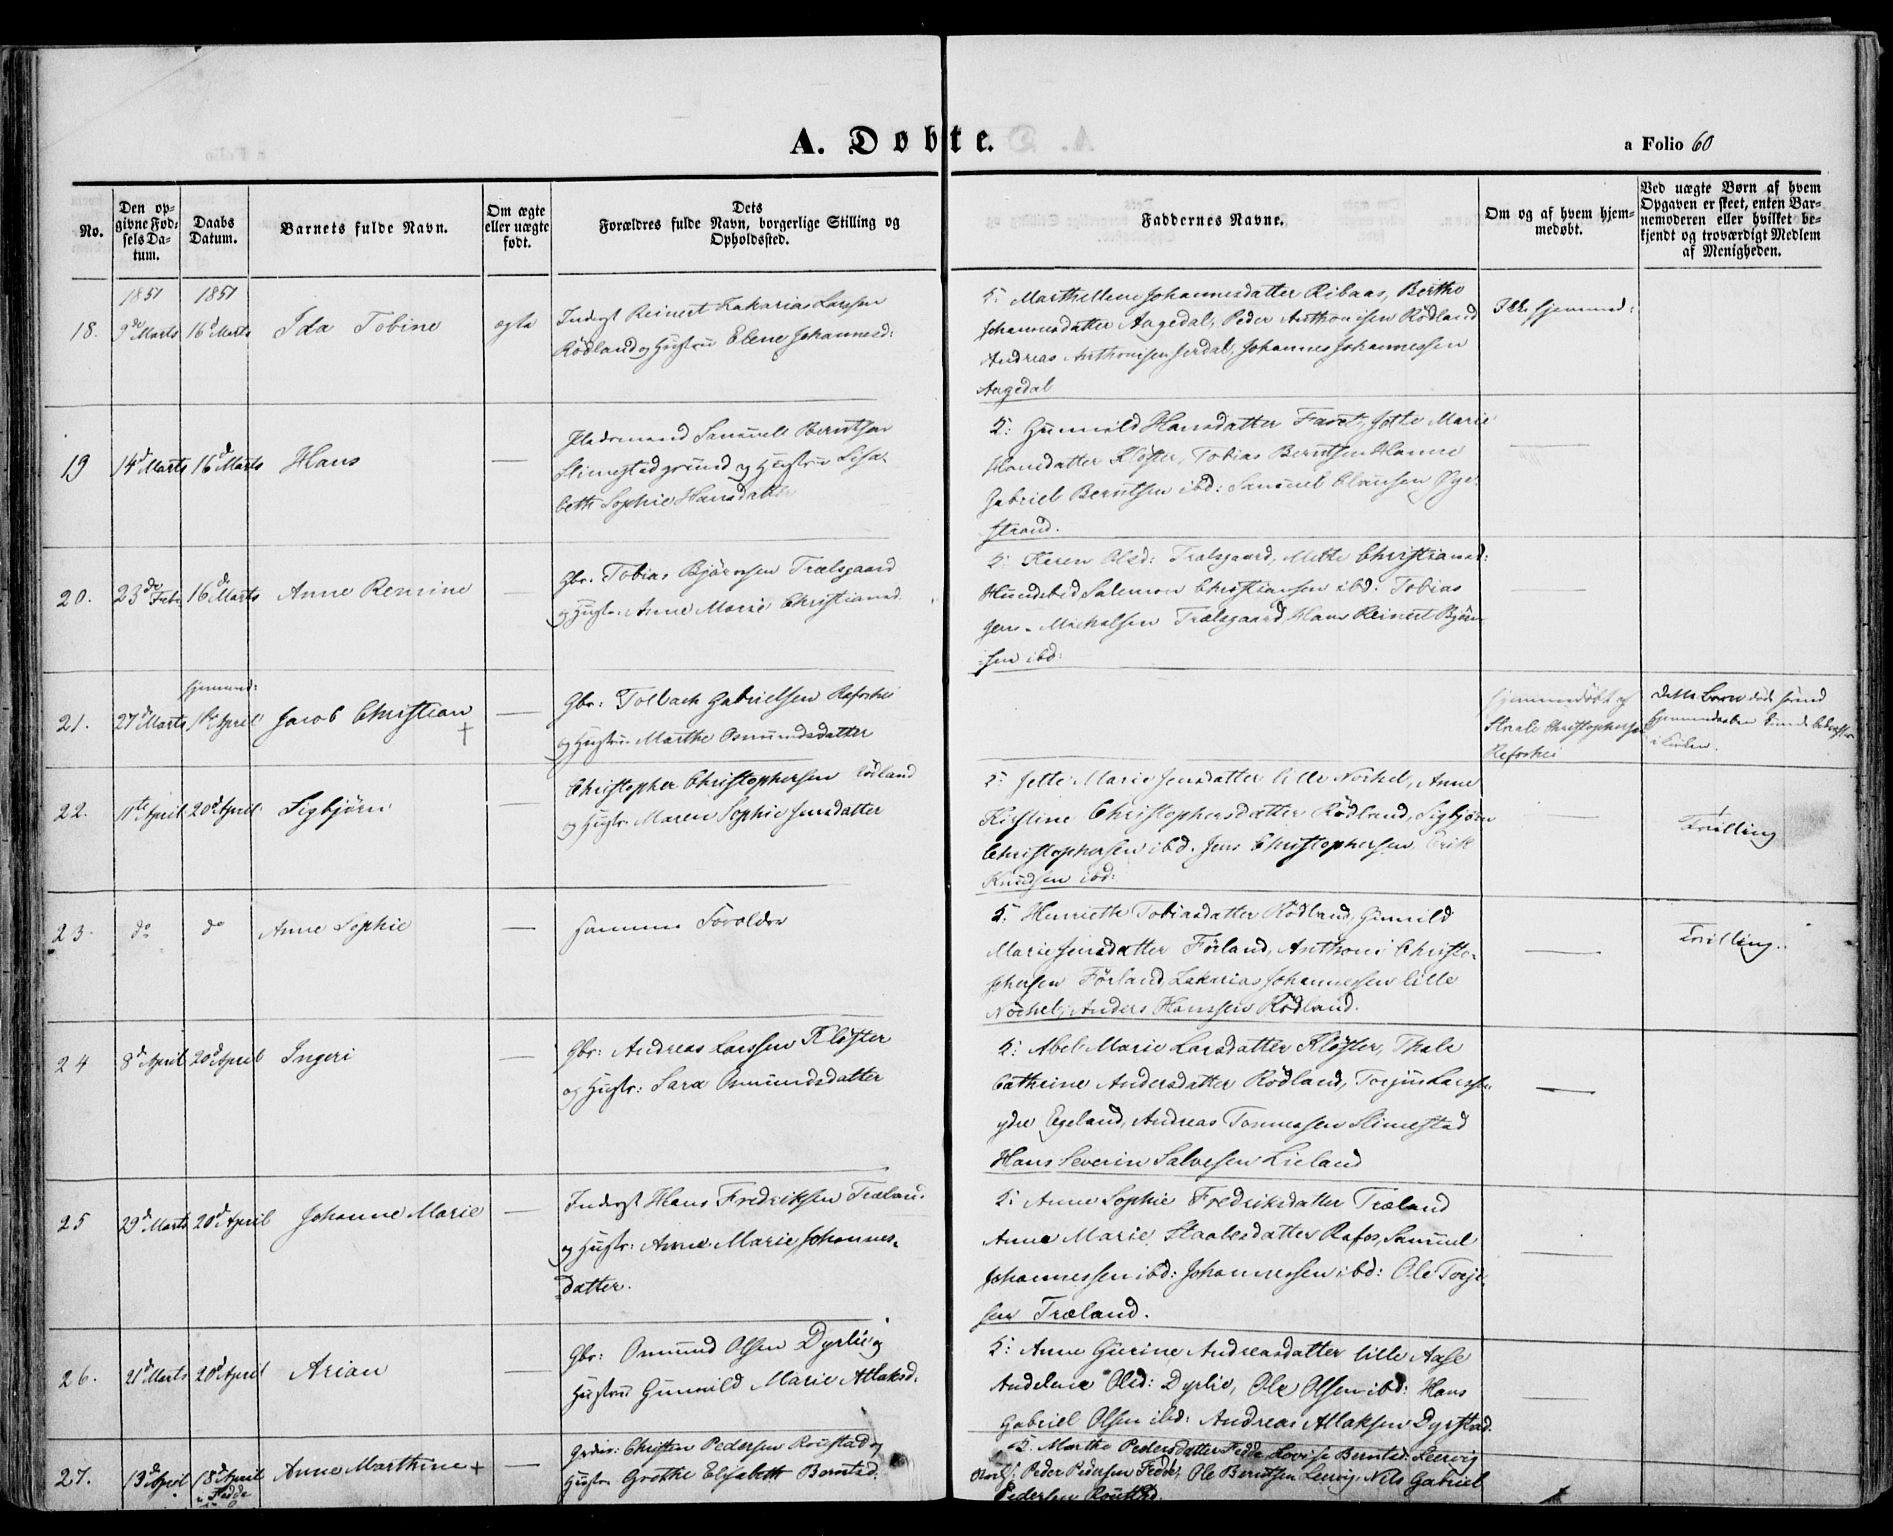 A. Døbte.
a Folio 60
No.
Den opgivne Fødsels Datum.
Daabs Datum.
Barnets fulde Navn.
Om ægte eller uægte født.
Dets Forældres fulde Navn, borgerlige Stilling og Opholdssted.
Faddernes Navne.
Om og af hvem hjemmedøbt.
Ved uægte Børn af hvem Opgaven er skeet, enten Barnemoderen eller hvilket bekjendt og troværdigt Medlem af Menigheden.
1851 1851
18. 9de Marts 16d Marts Ida Tobine ægte
Inderst Reinert Zakarias Larssen
Rødland og Hustru Elene Johannesd:
5: Marthe Johannesdatter Ribaas, Berthe
Johannesdatter Aagedal, Peder Anthonisen Rødland
Andreas Anthonisen Jerdal, Johannes Johannessen
Aagedal
19 14d Marts 16d Marts Hans —
Pladsmand Samuell Berntsen
Slimestad grund og Hustru Lisa-
beth Sophie Hansdatter
5: Gunnild Hansdatter Faret, Jotte Marie
Hansdatter Kløster, Tobias Berntsen
Gabriel Berntsen ibd: Samuel Clausen Øye-
strand.
20. 23de Febr 16de Marts Anne Remine —
Gbr. Tobias Bjørnsen Trælsgaard
og Hustr. Anne Marie Christiansd.
5: Karen Olsd: Trælsgaard, Mette Christiansd:
Salemon Christiansen ibd. Tobias
Michalsen Trælsgaard, Hans Reinert Bjørn-
sen ibd:
hjemmed:
21. 27d Marts 1ste April Jacob Christian † —
Gbr: Tolbach Gabrielsen Refsehei
og Hustru Marthe Osmundsdatter
hjemmedøbt af
Staale Christophersen
Refsehei
dette Barn døde
22. 11te April 20d April Sigbjørn —
Christopher Christophersen Rødland
og Hustr. Maren Sophie Jensdatter
5: Jette Marie Jensdatter lille Nochel, Anne
Kirstine Christophersdatter Rødland, Sigbjørn
Christophersen ibd. Jens Christophersen, Erik
Knudsen ibd:
Tvilling
23. do do Anne Sophie —
samme Forældre
5: Henriette Tobiasdatter Rødland, Gunnild
Marie Jensdatter Førland, Anthoni Christo-
phersen Førland, Zakarias Johannessen lille
Nochel, Anders Hanssen Rødland.
Tvilling.
24 8d April 20d April Ingeri —
Gbr: Andreas Larssen Kløster
og Hustr: Sara Osmundsdatter
5: Abel Marie Larsdatter Kløster, Thale
Cathrine Andersdatter Rødland, Torjus Larssen
ydre Egeland, Andreas Tønnessen Slimestad
Hans Severin Salvesen Lieland
25 29d Marts 20d April Johanne Marie —
Inderst Hans Fredriksen Træland
og Hustr: Anne Marie Johannes-
datter.
5: Anne Sophie Fredriksdatter Træland
Anne Marie Staalesdatter Rafos, Samuel
Johannessen ibd: Johannessen ibd: Ole Torje-
sen Træland.
26. 21d Marts 20d April Arian —
Gbr: Osmund Olsen Dyrlie og
Hustru Gunnild Marie Atlaksd.
5: Anne Gurine Andreasdatter lille Aase
Andelene Olsd: Dyrlie, Ole Olsen ibd: Hans
Gabriel Olsen ibd: Andreas Atlaksen Dyrstad.
27. 13d April 18d April i Fedde Anne Marthine + —
Christen Pedersen Roustad og
Hustr Grethe Elisabeth Berntsd.
5. Marthe Pedersdatter Fedde Lovise Berntsd: Leervig
Peder Pedersen Fedde, Ole Berntsen Leervig, Nils Gabriel
Pedersen Roustad.